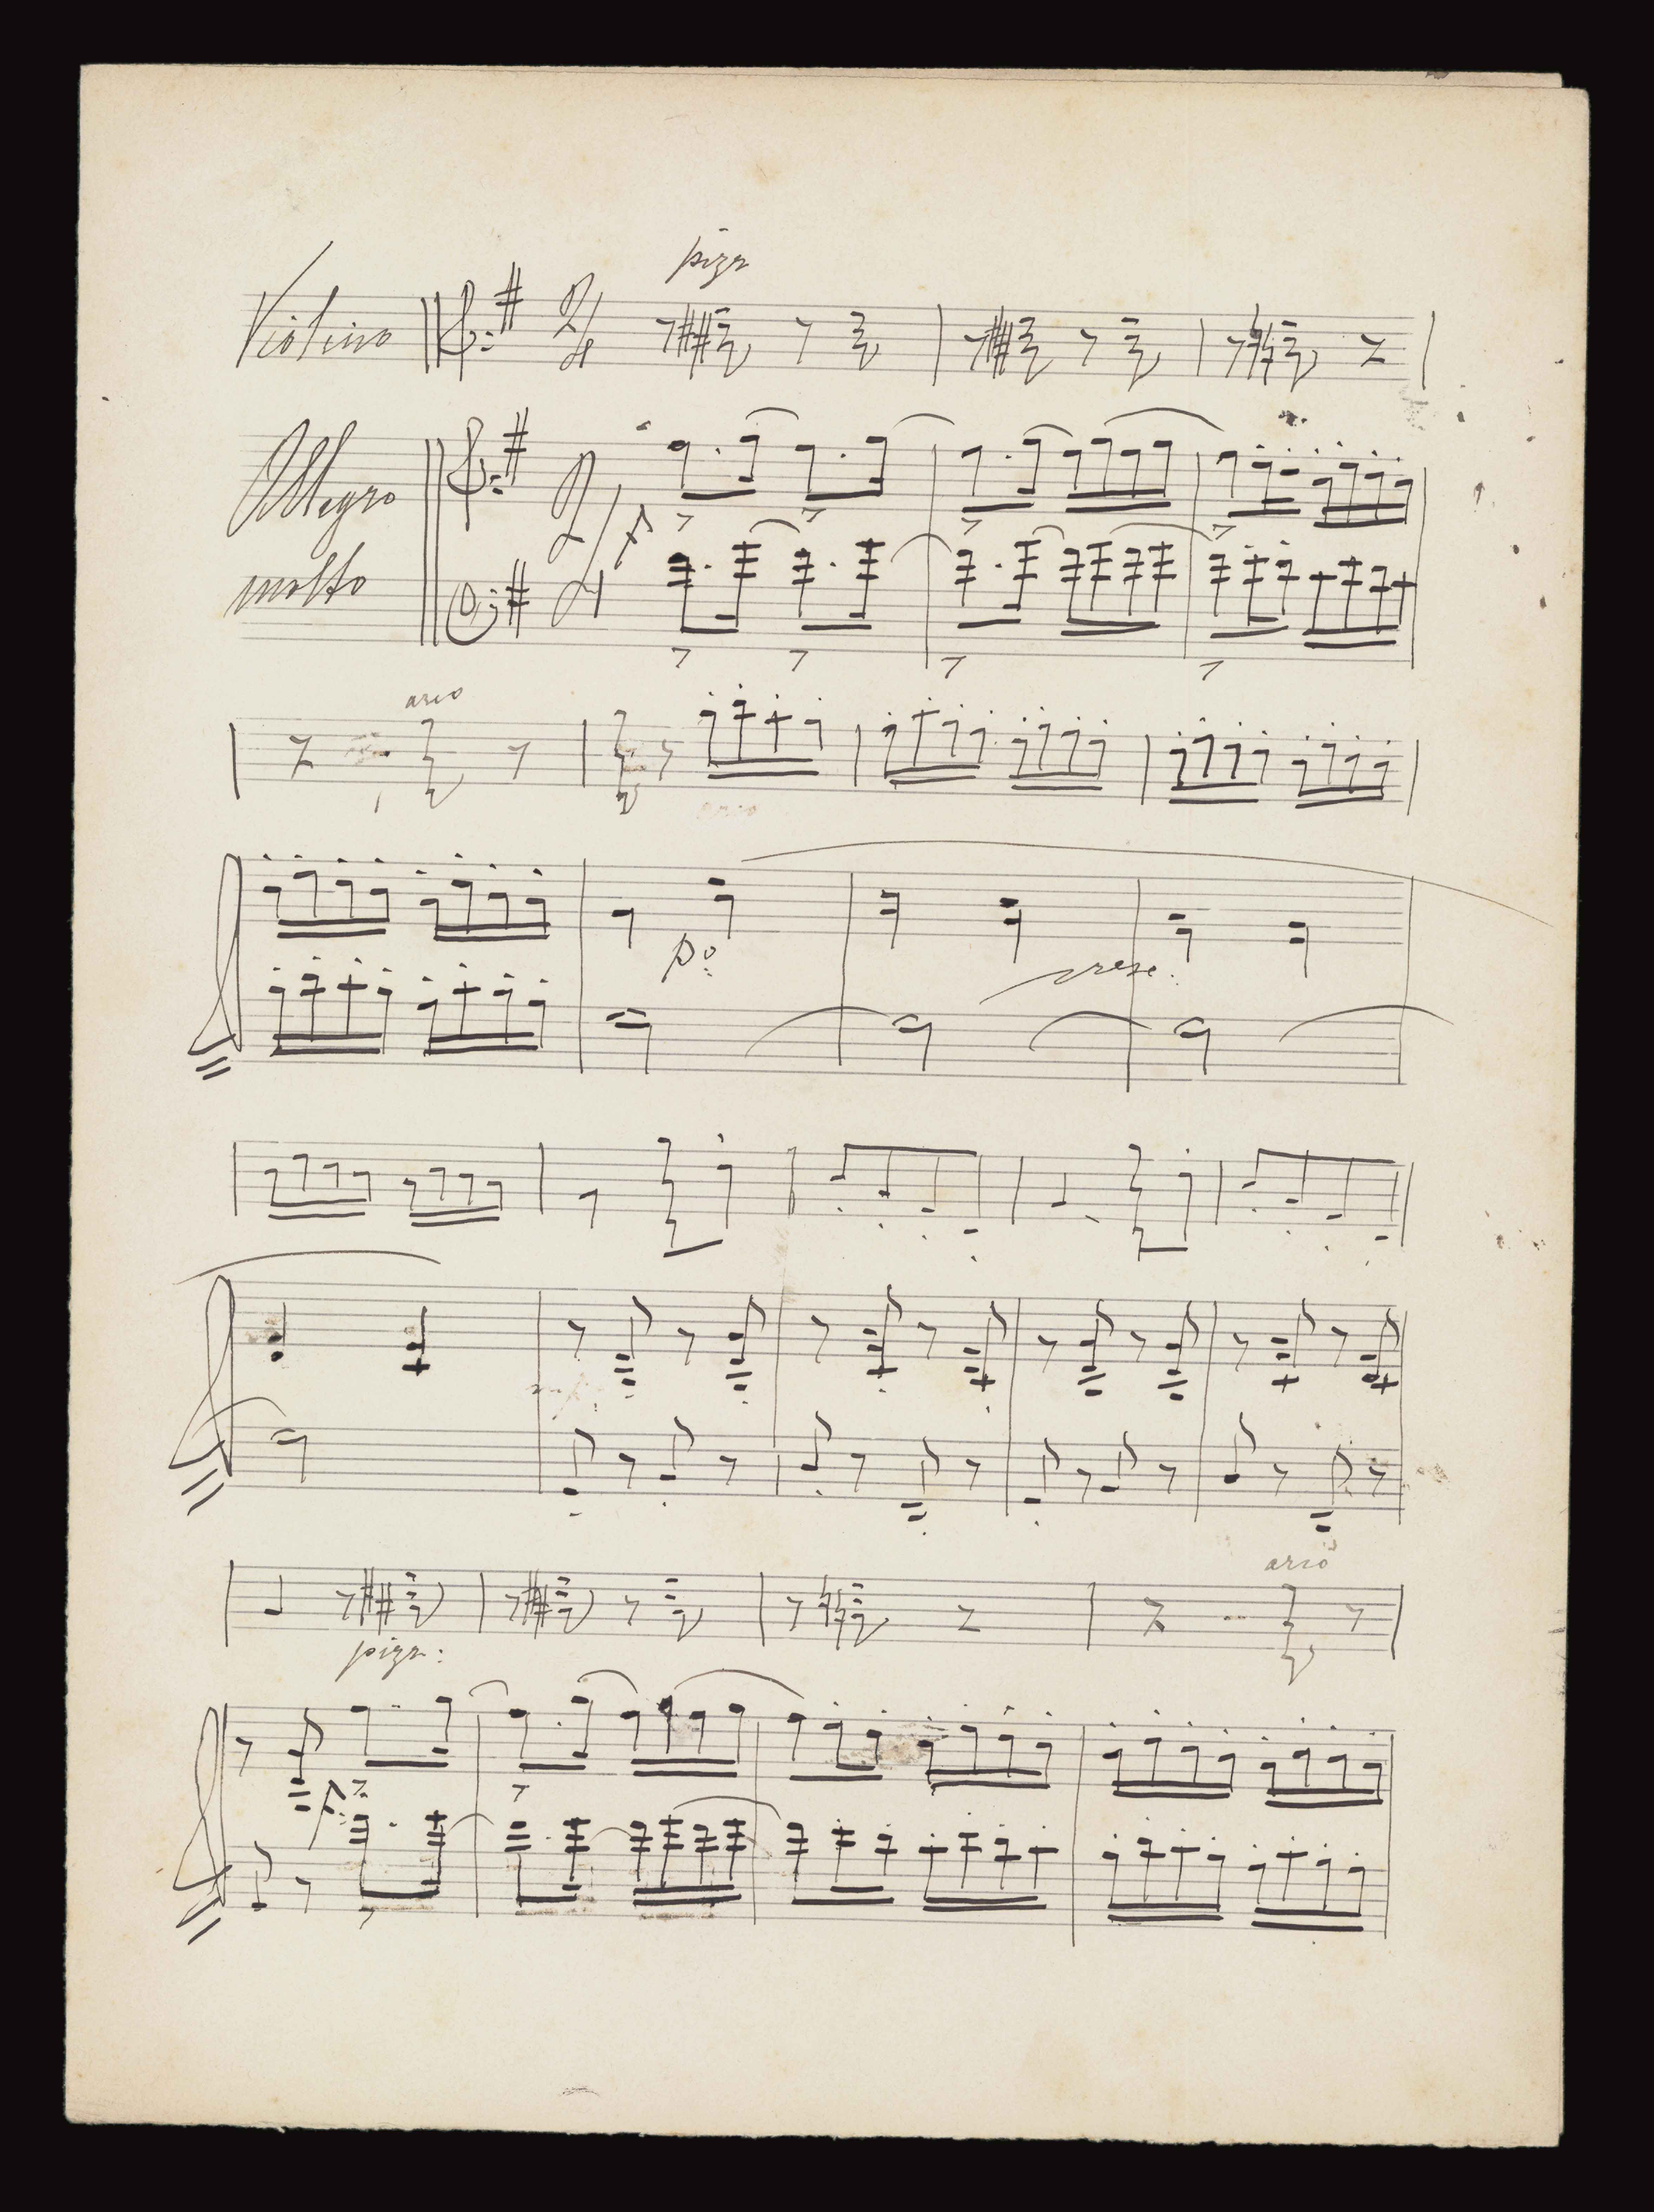 pizz
Violino 2/4
Allegro 2/4
f
molto 2/4
arco
arco
po:
cresc.
arco
pizz:
f: